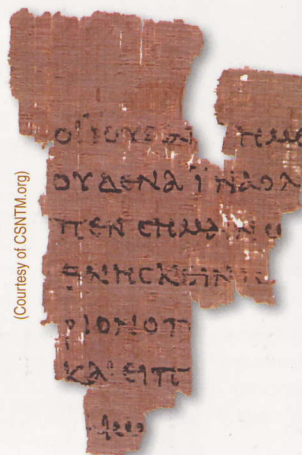 (Courtesy of CSNTM.org)
ΟΙΪΟΥΔΑΙ ΗΜΕ
ΟΥΔΕΝΑΪΝΑΟΛ
ΠΕΝϹΗΜΑΙΝΩ
ΘΝΗϹΚΕΙΝ
ΡΙΟΝΟΠ
ΚΑΙΕΙΠ